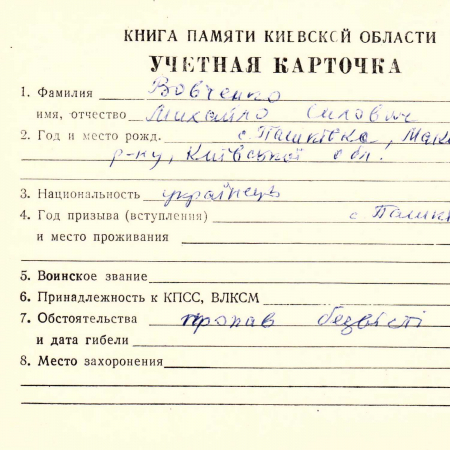 КНИГА ПАМЯТИ КИЕВСКОЙ ОБЛАСТИ
УЧЕТНАЯ КАРТОЧКА
1. Фамилия Вовченко
имя, отчество Михайло Силович
2. Год и место рожд. с. Пашківка, Мака
р-ну, Київської обл.
3. Национальность українець
4. Год призыва (вступления) с Пашкі
и место проживания
5. Воинское звание
6. Принадлежность к КПСС, ВЛКСМ
7. Обстоятельства пропав безвісті
и дата гибели
8. Место захоронения